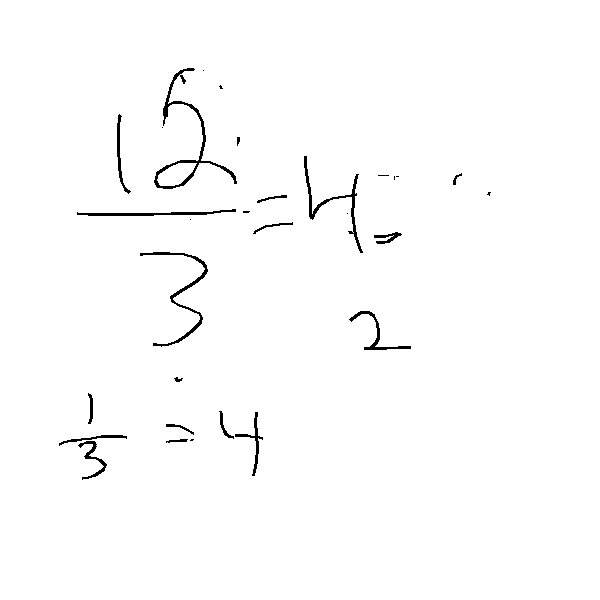 12/3 = 4
2
1/3 = 4